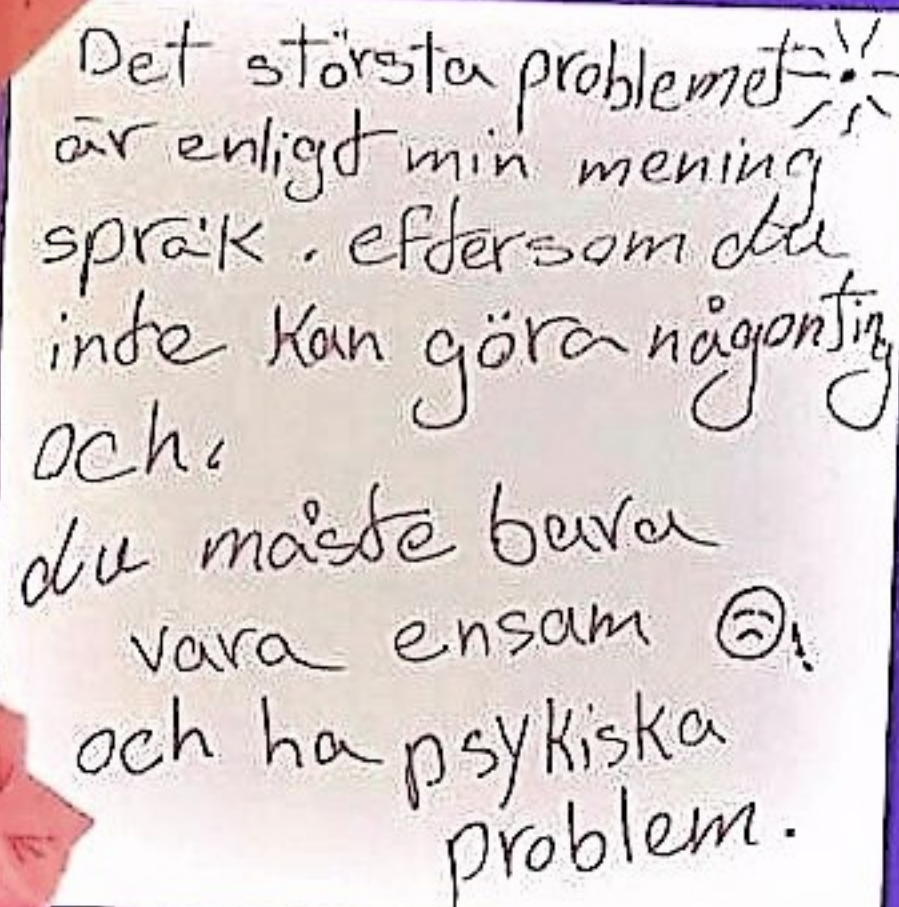 Det största problemet
är enligt min mening
språk. eftersom du
inte kan göra någonting
och.
du måste bara
vara ensam ☹!
och ha psykiska
problem.